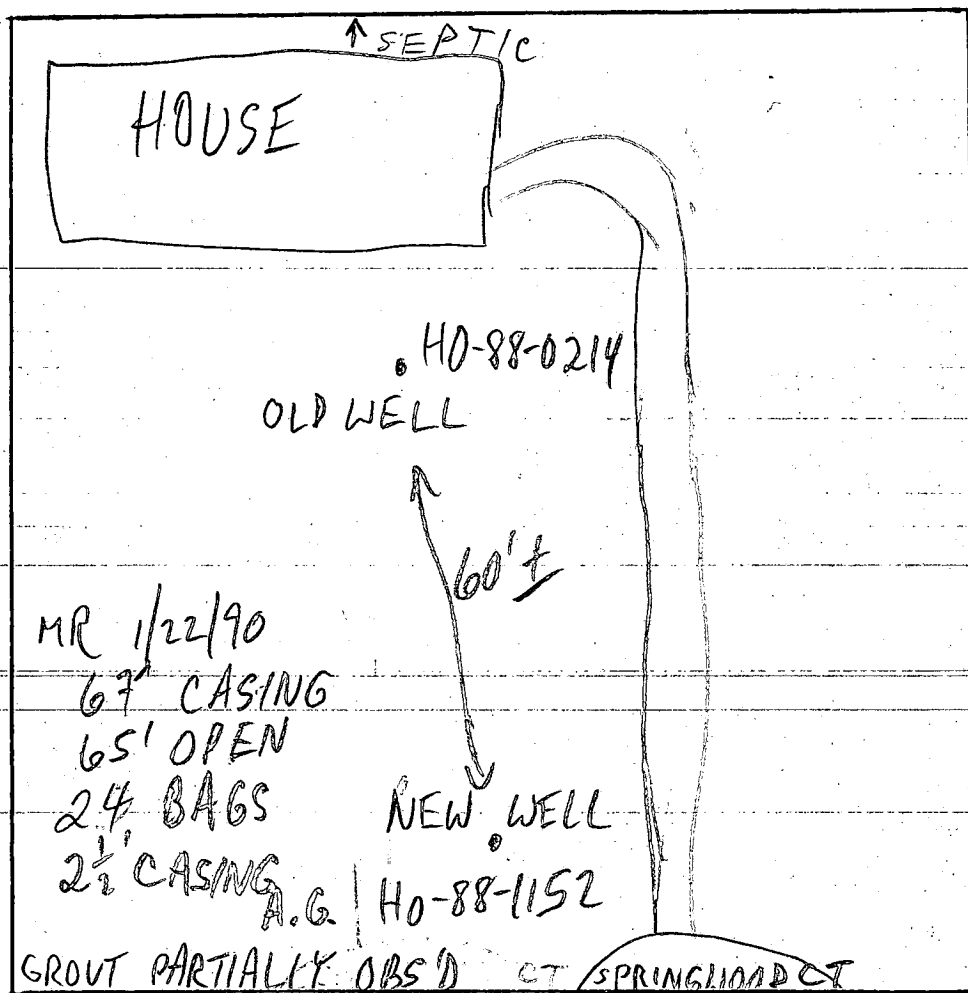 ↑ SEPTIC
HOUSE
HO-88-0214
OLD WELL
60' ±
MR 1/22/90
67' CASING
65' OPEN
24 BAGS
2½' CASING A.G.
NEW WELL
HO-88-1152
GROUT PARTIALLY OBS'D
CT SPRINGWOOD CT